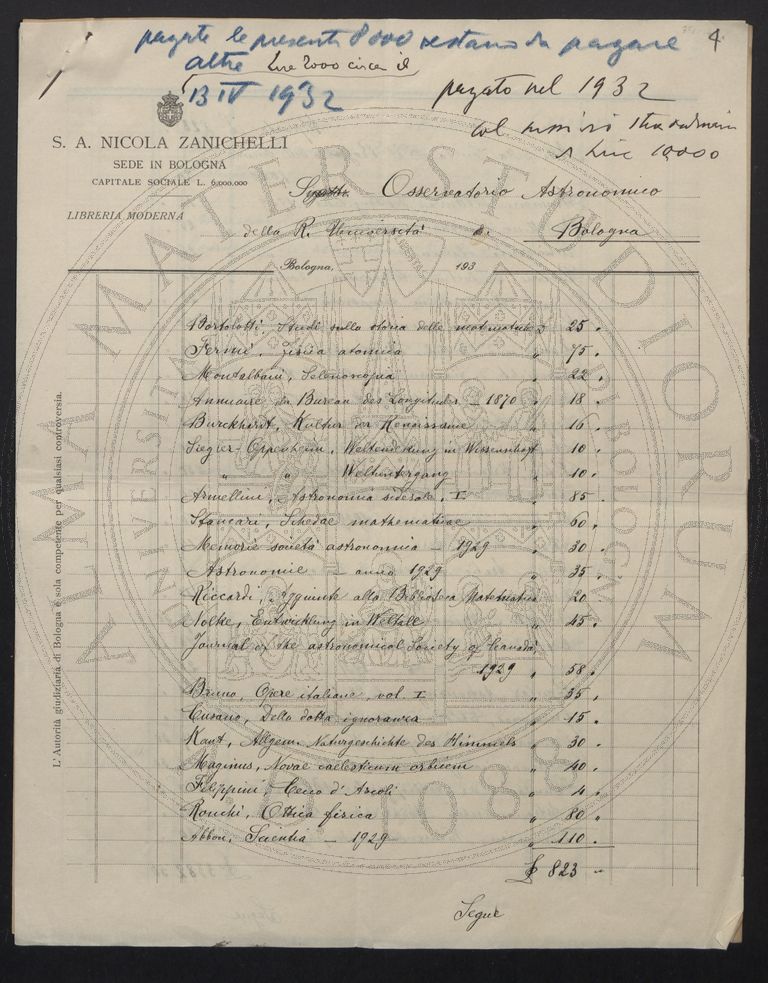 4
pagate le presenti 8000 restano da pagare
altre Lire 2000 circa il
13 IV 1932
pagato nel 1932
col
Lire 10.000
S. A. NICOLA ZANICHELLI
SEDE IN BOLOGNA
CAPITALE SOCIALE L. 6.000.000
LIBRERIA MODERNA
Spett. Osservatorio Astronomico
della R. Università di Bologna
Bologna, 193
Bortolotti, Studi sulla storia delle matematiche 25 "
Fermi, Fisica atomica " 75 "
Montalbani, Selenoscopia " 22 "
Annuaire du Bureau des Longitudes - 1870 " 18 "
Burckhardt, Kultur der Renaissance " 16 "
Siegler Oppenheim, Weltendstung in Wissenschaft 10 "
" " Weltuntergang " 10 "
Armellini, Astronomia siderale, I " 85 "
Stancari, Schedae mathematicae " 60 "
Memorie società astronomia - 1929 " 30 "
Astronomie - anno 1929 " 35 "
Riccardi, Aggiunte alla Biblioteca Matematica 20 "
Nolke, Entwicklung in Weltall " 45 "
Journal of the astronomical Society of Canada,
1929 " 58 "
Bruno, Opere italiane, vol. I " 35 "
Cusano, Della dotta ignoranza " 15 "
Kant, Allgem. Naturgeschichte des Himmels " 30 "
Maginus, Novae caelestium orbium " 40 "
Filippini, Cecco d'Ascoli " 4 "
Ronchi, Ottica fisica " 80 "
Abbon. Scientia - 1929 " 110 "
£ 823 "
Segue
L'Autorità giudiziaria di Bologna è sola competente per qualsiasi controversia.
ALMA MATER STUDIORUM
UNIVERSITÀ DI BOLOGNA
A.D. 1088